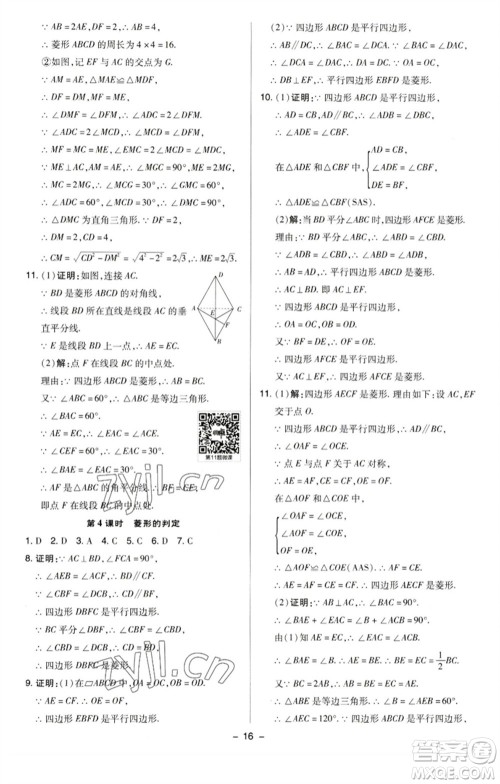 ∵ AM=2, ∴ AD=4.
∴ 菱形 ABCD 的周长为 4×4=16.
②如图,记 EF 与 AC 的交点为 G.
∵ AM=AE, △AME≌△DMF,
∴ DF=DM, MF=ME,
∴ ∠DMF=∠DFM.
∴ ∠ADC=2∠DFM.
∵ ∠ADC=2∠MCD, ∴ ∠MCD=∠DFM.
∴ MF=MC=ME, ∴ EF=2MC.
∵ ME=2MG, ∴ MC=2MG.
∵ ∠MGC=90°, ∴ ∠MCG=30°.
∴ ∠DMC=∠MGC=90°.
∴ △DMC 为直角三角形.
∵ DF=2, ∴ DM=2, CD=4.
∴ CM=√CD²−DM²=√4²−2²=2√3.
11. (1)证明:如图,连接 AC.
∵ BD 是菱形 ABCD 的对角线,
∴ 线段 BD 所在直线是线段 AC 的垂
直平分线.
∵ E 是线段 BD 上一点, ∴ AE=EC.
(2)解:点 F 在线段 BC 的中点处.
理由:∵ 四边形 ABCD 是菱形,
∴ AB=CB.
∵ ∠ABC=60°,
∴ △ABC 是等边三角形.
∴ ∠BAC=60°.
∵ AE=EC, ∴ ∠EAC=∠ACE.
∵ ∠CEF=60°, ∴ ∠EAC=30°.
∴ ∠EAC=∠EAB.
∴ AF 是 △ABC 的角平分线.
∴ BF=CF.
即点 F 在线段 BC 的中点处.
第11题微课
第 4 课时 菱形的判定
1. D 2. D 3. A 4. C 5. C 6. C 7. C
8. 证明:∵ AC⊥BD, ∠FCA=90°,
∴ ∠AEB=∠ACF. ∴ BD∥CF.
∵ ∠CBF=∠DCB, ∴ CD∥BF.
∴ 四边形 DBFC 是平行四边形.
∵ BC 平分∠DBF, ∴ ∠CBF=∠CBD.
∴ ∠CBD=∠DCB. ∴ CD=BD.
∴ 四边形 DBFC 是菱形.
9. 证明:(1) 在▱ABCD 中, OA=OC, OB=OD.
∵ AE=CF, ∴ OE=OF.
∴ 四边形 EBFD 是平行四边形.
(2) ∵ 四边形 ABCD 是平行四边形,
∴ AB∥DC. ∴ ∠BAC=∠DCA.
∵ ∠BAC=∠DAC, ∴ ∠DCA=∠DAC.
∴ DA=DC. ∵ OA=OC, ∴ DB⊥EF.
∴ 四边形 EBFD 是菱形.
10. (1)证明:∵ 四边形 ABCD 是平行四边形,
∴ AD=CB, AD∥BC.
∴ ∠ADE=∠CBF.
在 △ADE 和 △CBF 中,
AD=CB,
∠ADE=∠CBF,
DE=BF,
∴ △ADE≌△CBF(SAS).
(2)解:当 BD 平分∠ABC 时,四边形 AFCE 是菱形.
理由:∵ BD 平分∠ABC, ∴ ∠ABD=∠CBD.
∵ 四边形 ABCD 是平行四边形,
∴ OA=OC, OB=OD, AD∥BC.
∴ ∠ADB=∠CBD. ∴ ∠ABD=∠ADB.
∴ AB=AD. ∴ 平行四边形 ABCD 是菱形.
∴ AC⊥BD.
∵ DE=BF, ∴ OE=OF.
又∵ OA=OC, ∴ 四边形 AFCE 是平行四边形.
∵ AC⊥EF, ∴ 四边形 AFCE 是菱形.
11. (1)解:四边形 AECF 是菱形. 理由:设 AC, EF
交于点 O.
∵ 四边形 ABCD 是平行四边形, ∴ AD∥BC.
∴ ∠OAF=∠OCE, ∠AFO=∠CEO.
∵ 点 A 与点 C 关于 EF 对称,
∴ AE=EC, AO=CO.
在 △AOF 和 △COE 中,
∠OAF=∠OCE,
∠AFO=∠CEO,
OA=OC,
∴ △AOF≌△COE(AAS). ∴ AF=CE.
∴ AE=AF=CE. ∴ 四边形 AECF 是菱形.
(2)证明:∵ AB⊥AC, ∴ ∠BAC=90°.
由(1)知 AE=EC, ∴ ∠EAC=∠ECA.
∴ ∠BAE=∠B. ∴ AE=BE. ∴ BE=EC=1/2 BC.
又∵ BC=2AB, ∴ AB=BE=AE.
∴ △ABE 是等边三角形. ∴ ∠AEB=60°.
∴ ∠AEC=120°. ∵ 四边形 AECF 是菱形,
－ 16 －
zyjl.cn
zyjl.cn